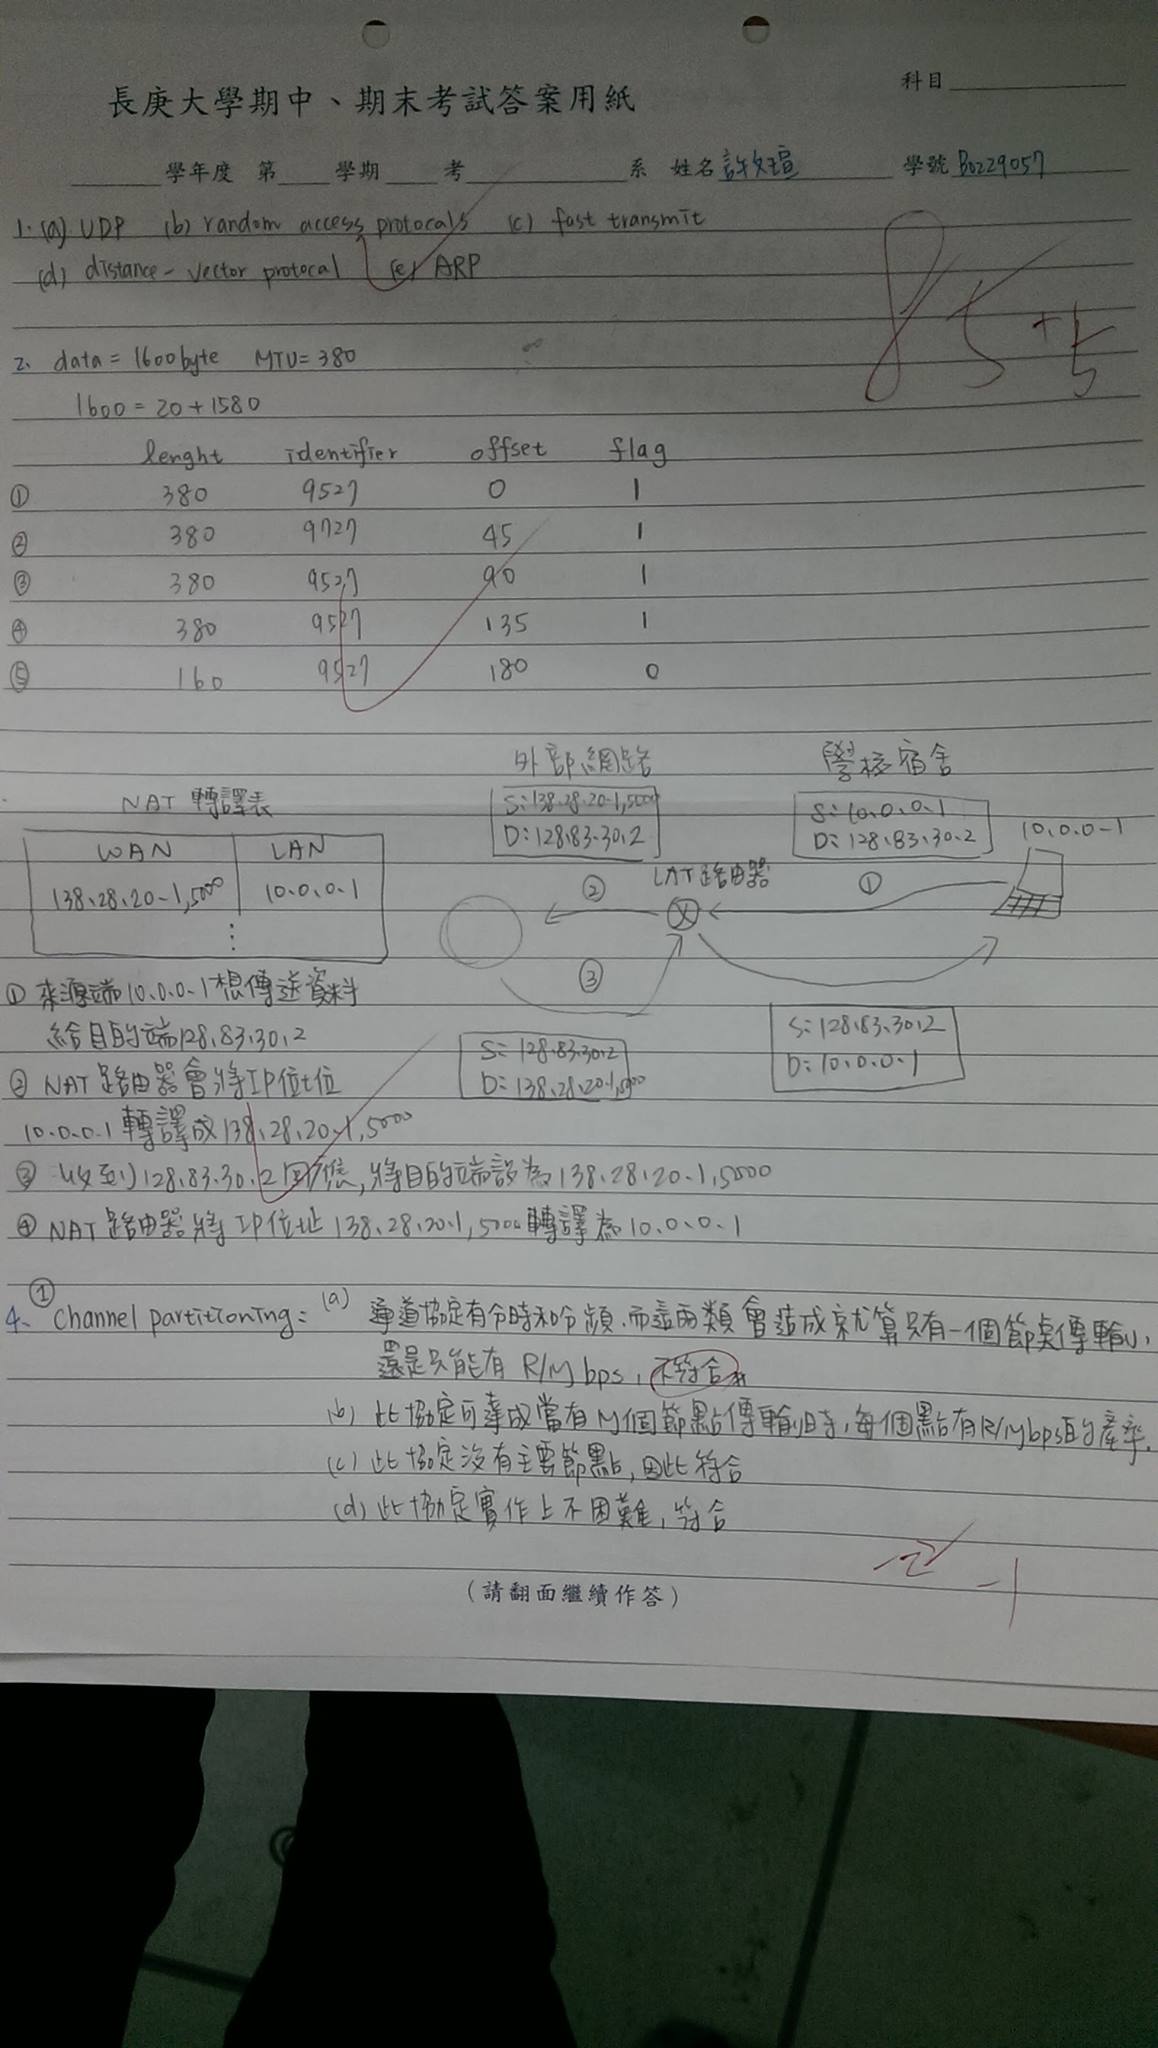 科目
長庚大學期中、期末考試答案用紙
學年度 第 學期 考 系 姓名 許文瑄 學號 B0229057
1. (a) UDP (b) random access protocals (c) fast transmit
(d) distance-vector protocal (e) ARP
85+5
2. data = 1600byte MTU = 380
1600 = 20 + 1580
lenght identifier offset flag
① 380 9527 0 1
② 380 9727 45 1
③ 380 9527 90 1
④ 380 9527 135 1
⑤ 160 9527 180 0
外部網路 學校宿舍
NAT 轉譯表
S: 138.28.20.1,5000
D: 128.83.30.2
S: 10.0.0.1
D: 128.83.30.2
10.0.0.1
WAN LAN
138.28.20.1,5000 10.0.0.1
⋮
② LAT路由器 ①
③
① 來源端10.0.0.1想傳送資料
給目的端128.83.30.2
S: 128.83.30.2
D: 138.28.20.1,5000
S: 128.83.30.2
D: 10.0.0.1
② NAT路由器會將IP位址
10.0.0.1轉譯成138.28.20.1,5000
③ 收到128.83.30.2回應,將目的端設為138.28.20.1,5000
④ NAT路由器將IP位址138.28.20.1,5000轉譯為10.0.0.1
4. ① Channel partitioning: (a) 通道協定有分時和分頻,而這兩類會造成就算只有一個節點傳輸,
還是只能有R/M bps,不符合
(b) 此協定可達成當有M個節點傳輸時,每個點有R/M bps的產率.
(c) 此協定沒有主要節點,因此符合
(d) 此協定實作上不困難,符合
-1
(請翻面繼續作答)